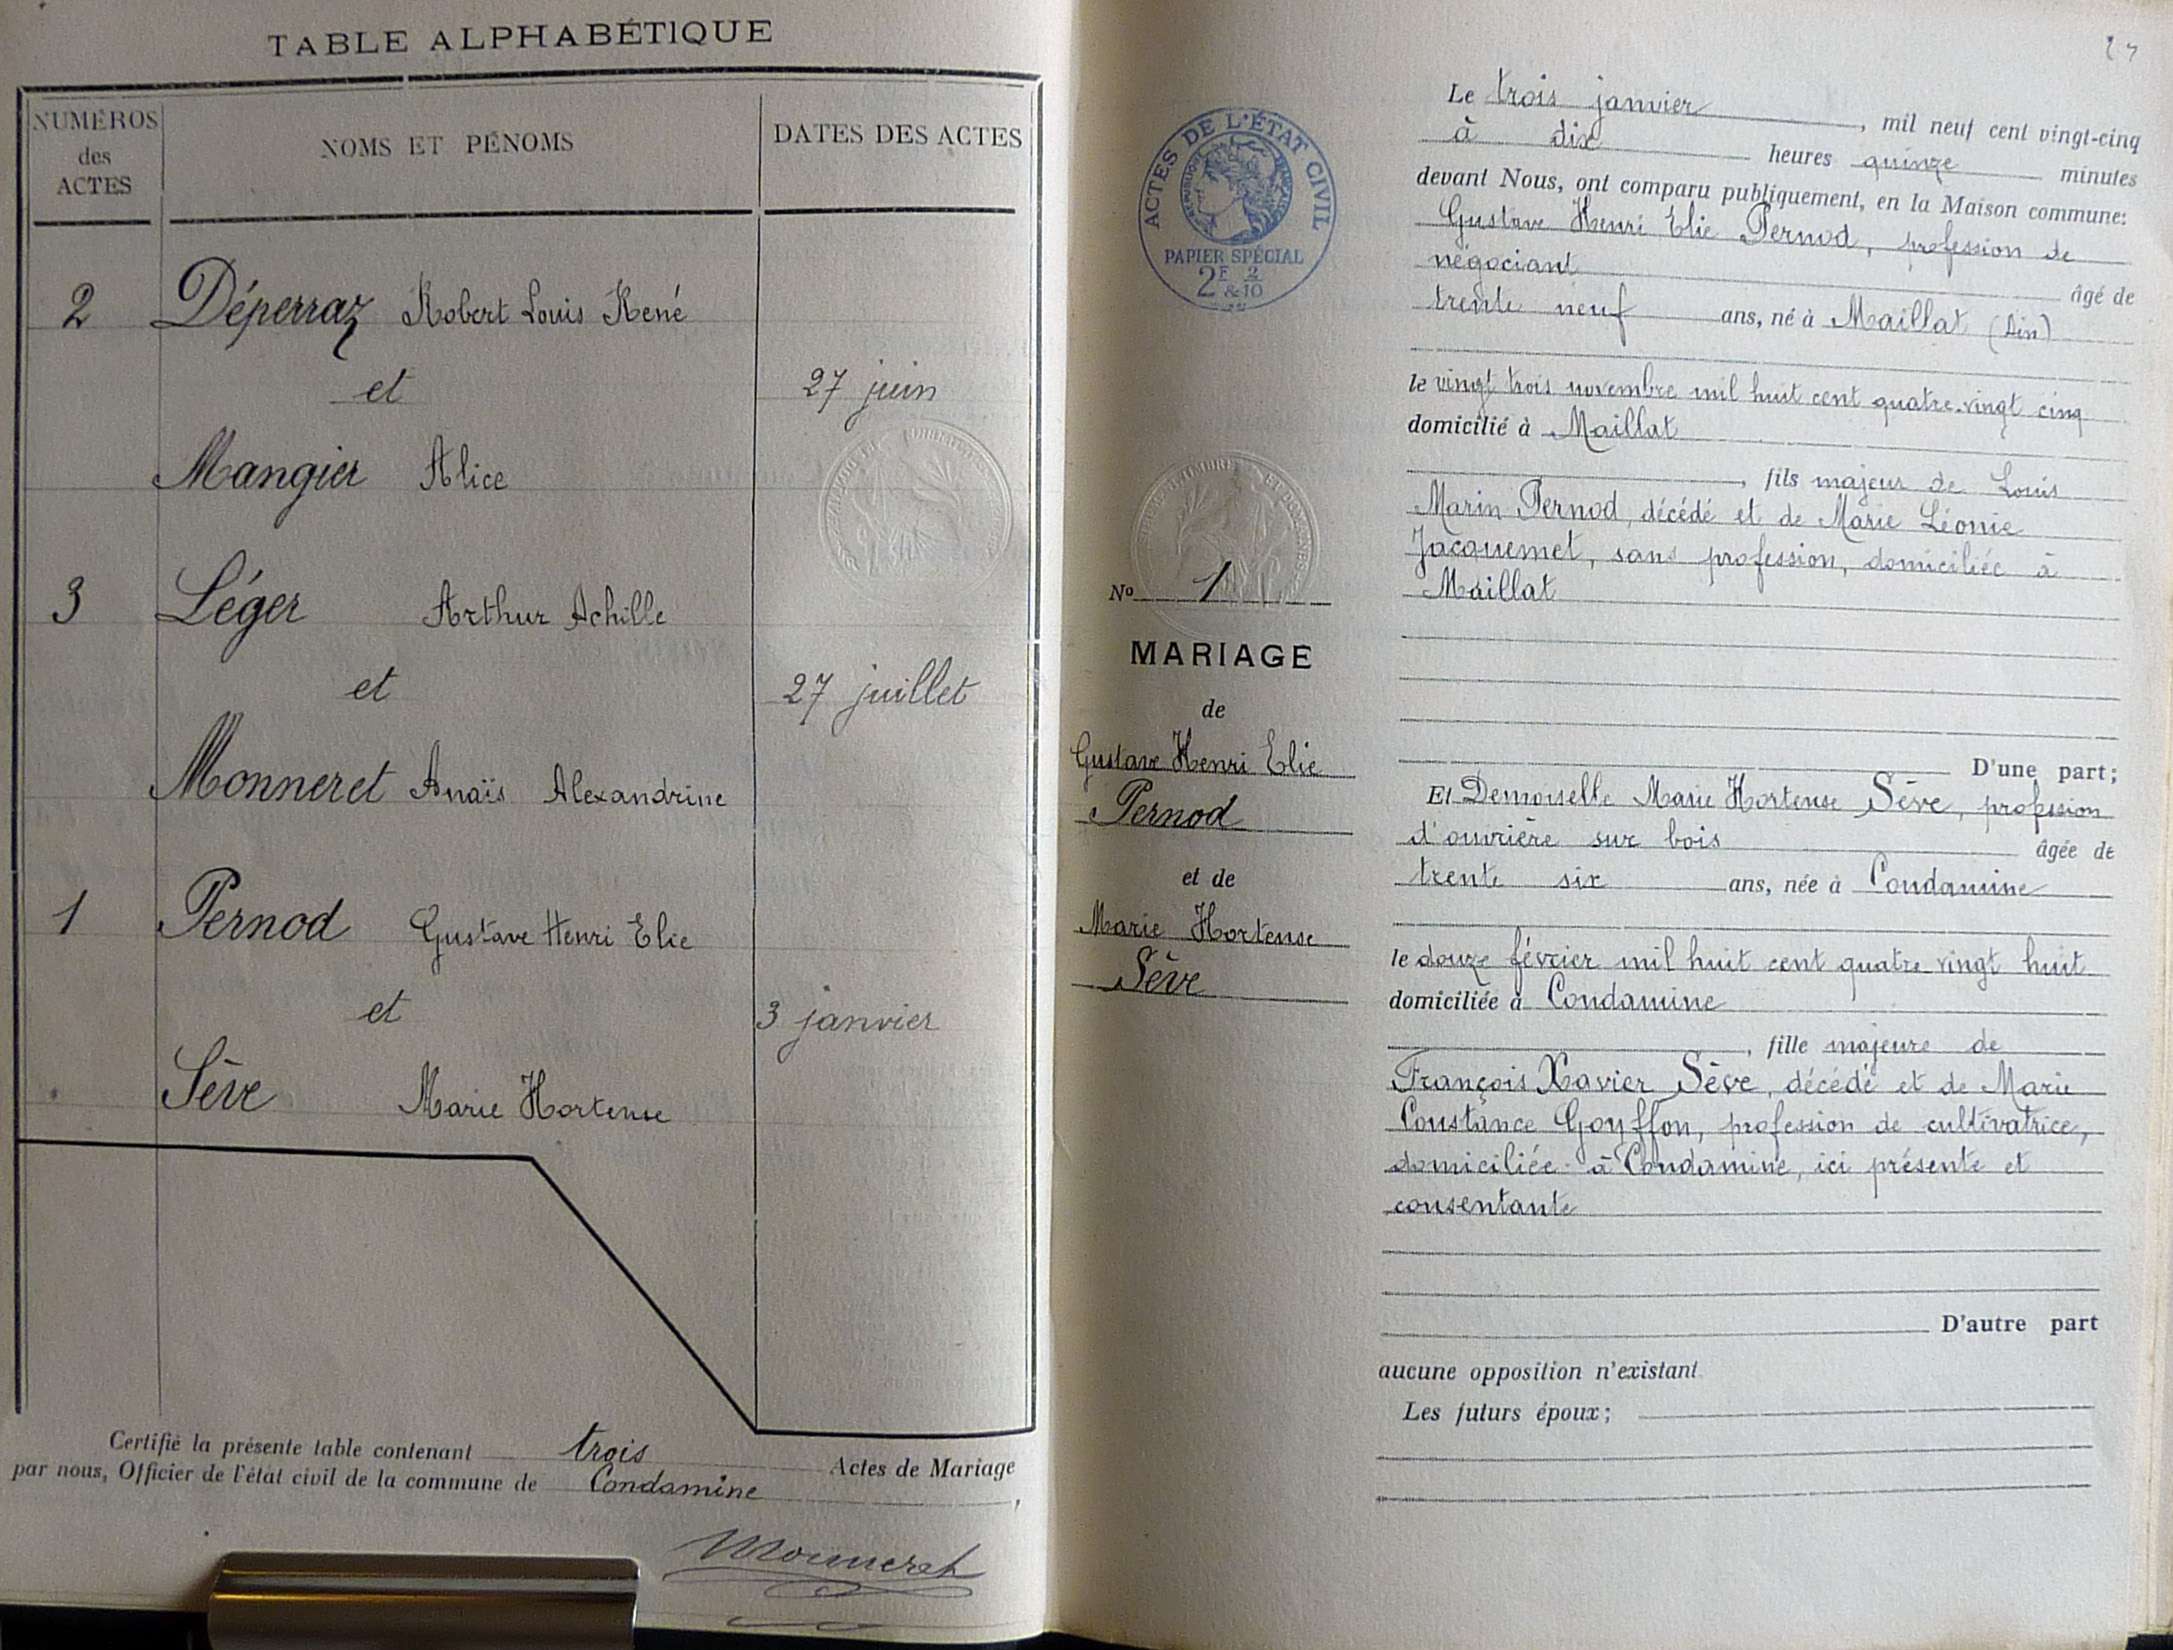 TABLE ALPHABÉTIQUE
NUMÉROS des ACTES
NOMS ET PÉNOMS
DATES DES ACTES
2 Déperraz Robert Louis René
et
27 juin
Mangier Alice
3 Léger Arthur Achille
et
27 juillet
Monneret Anaïs Alexandrine
1 Pernod Gustave Henri Elie
et
3 janvier
Sève Marie Hortense
Certifié la présente table contenant trois Actes de Mariage
par nous, Officier de l'état civil de la commune de Condamine ,
Monneret
ACTES DE L'ÉTAT CIVIL
PAPIER SPÉCIAL
2F 2
&10
No 1
MARIAGE
de
Gustave Henri Elie
Pernod
et de
Marie Hortense
Sève
Le trois janvier , mil neuf cent vingt-cinq
à dix heures quinze minutes
devant Nous, ont comparu publiquement, en la Maison commune:
Gustave Henri Elie Pernod, profession de
négociant âgé de
trente neuf ans, né à Maillat (Ain)
le vingt trois novembre mil huit cent quatre-vingt cinq
domicilié à Maillat
, fils majeur de Louis
Marin Pernod, décédé et de Marie Léonie
Jacquemet, sans profession, domiciliée à
Maillat
D'une part;
Et Demoiselle Marie Hortense Sève, profession
d'ouvrière sur bois âgée de
trente six ans, née à Condamine
le douze février mil huit cent quatre vingt huit
domiciliée à Condamine
, fille majeure de
François Xavier Sève, décédé et de Marie
Constance Gouffon, profession de cultivatrice,
domiciliée à Condamine, ici présente et
consentante
D'autre part
aucune opposition n'existant
Les futurs époux;